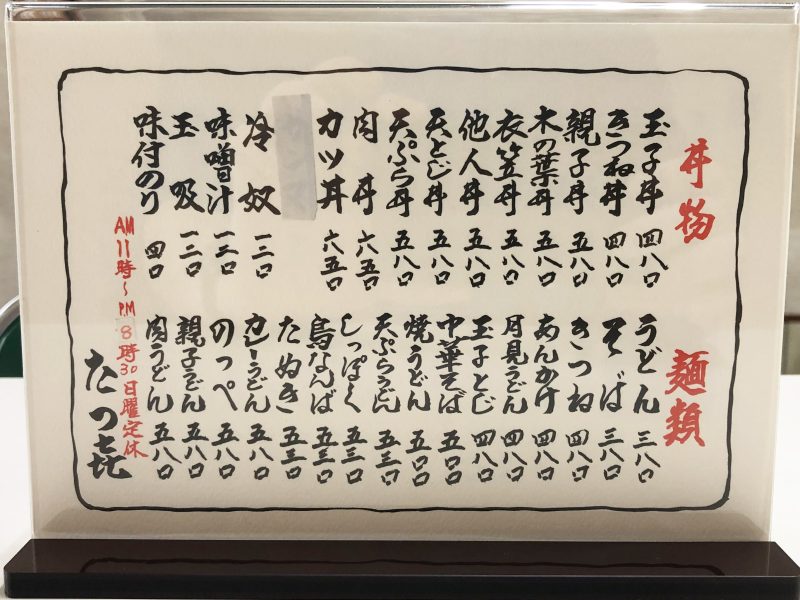 丼物
玉子丼 四八〇
きつね丼 四八〇
親子丼 五八〇
木の葉丼 五八〇
衣笠丼 五八〇
他人丼 五八〇
天とじ丼 五八〇
天ぷら丼 五八〇
肉丼 六五〇
カツ丼 六五〇
冷奴 一三〇
味噌汁 一三〇
玉吸 一三〇
味付のり 四〇
麺類
うどん 三八〇
そば 三八〇
きつね 四八〇
あんかけ 四八〇
月見うどん 四八〇
玉子とじ 四八〇
中華そば 五〇〇
焼うどん 五〇〇
天ぷらうどん 五三〇
しっぽく 五三〇
鳥なんば 五三〇
たぬき 五三〇
カレーうどん 五八〇
のっぺ 五八〇
親子うどん 五八〇
肉うどん 五八〇
AM11時〜PM8時30日曜定休
たつ㐂